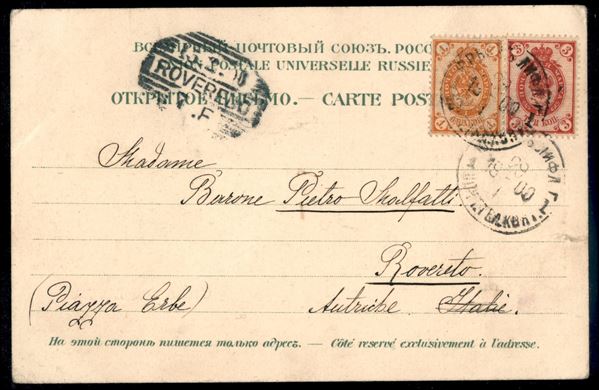 ВСЕМІРНЫЙ ПОЧТОВЫЙ СОЮЗЪ. РОСС
POSTALE UNIVERSELLE RUSSIE
ОТКРЫТОЕ ПИСЬМО. — CARTE POST
ROVERETO
Madame
Barone Pietro Malfatti
Rovereto.
(Piazza Erbe) Autriche. Italie.
На этой сторонѣ пишется только адресъ. — Côté reservé exclusivement à l'adresse.